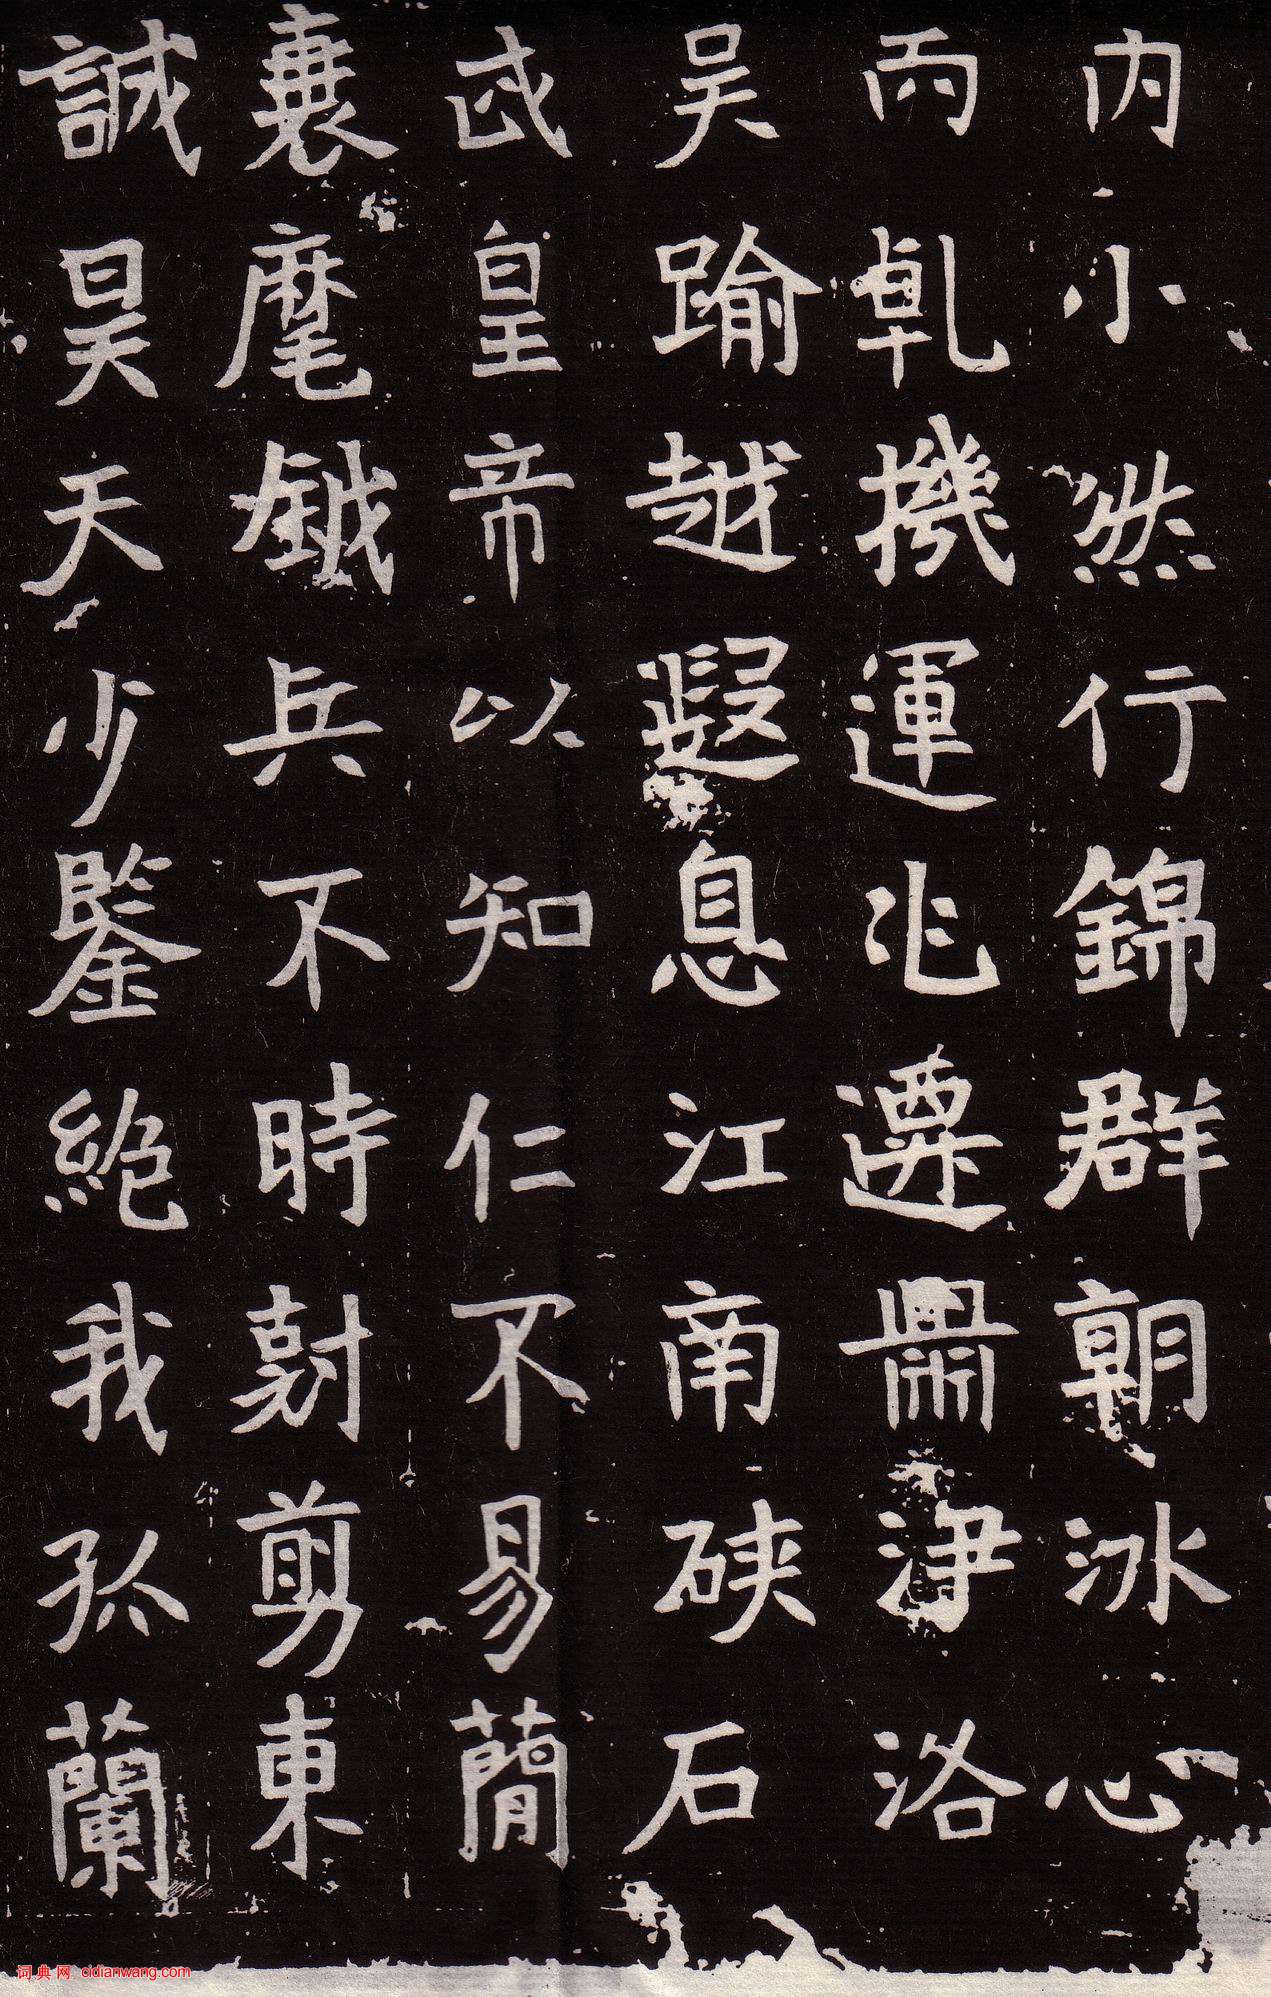 内小然行錦群朝冰心
而乹機運兆遷鼎洢洛
吴踰越遐息江南硤石
武皇帝以知仁不易蕑
襄麾鉞兵不時剋剪東
誠昊天少鑒絶我孤蘭
词典网 cidianwang.com